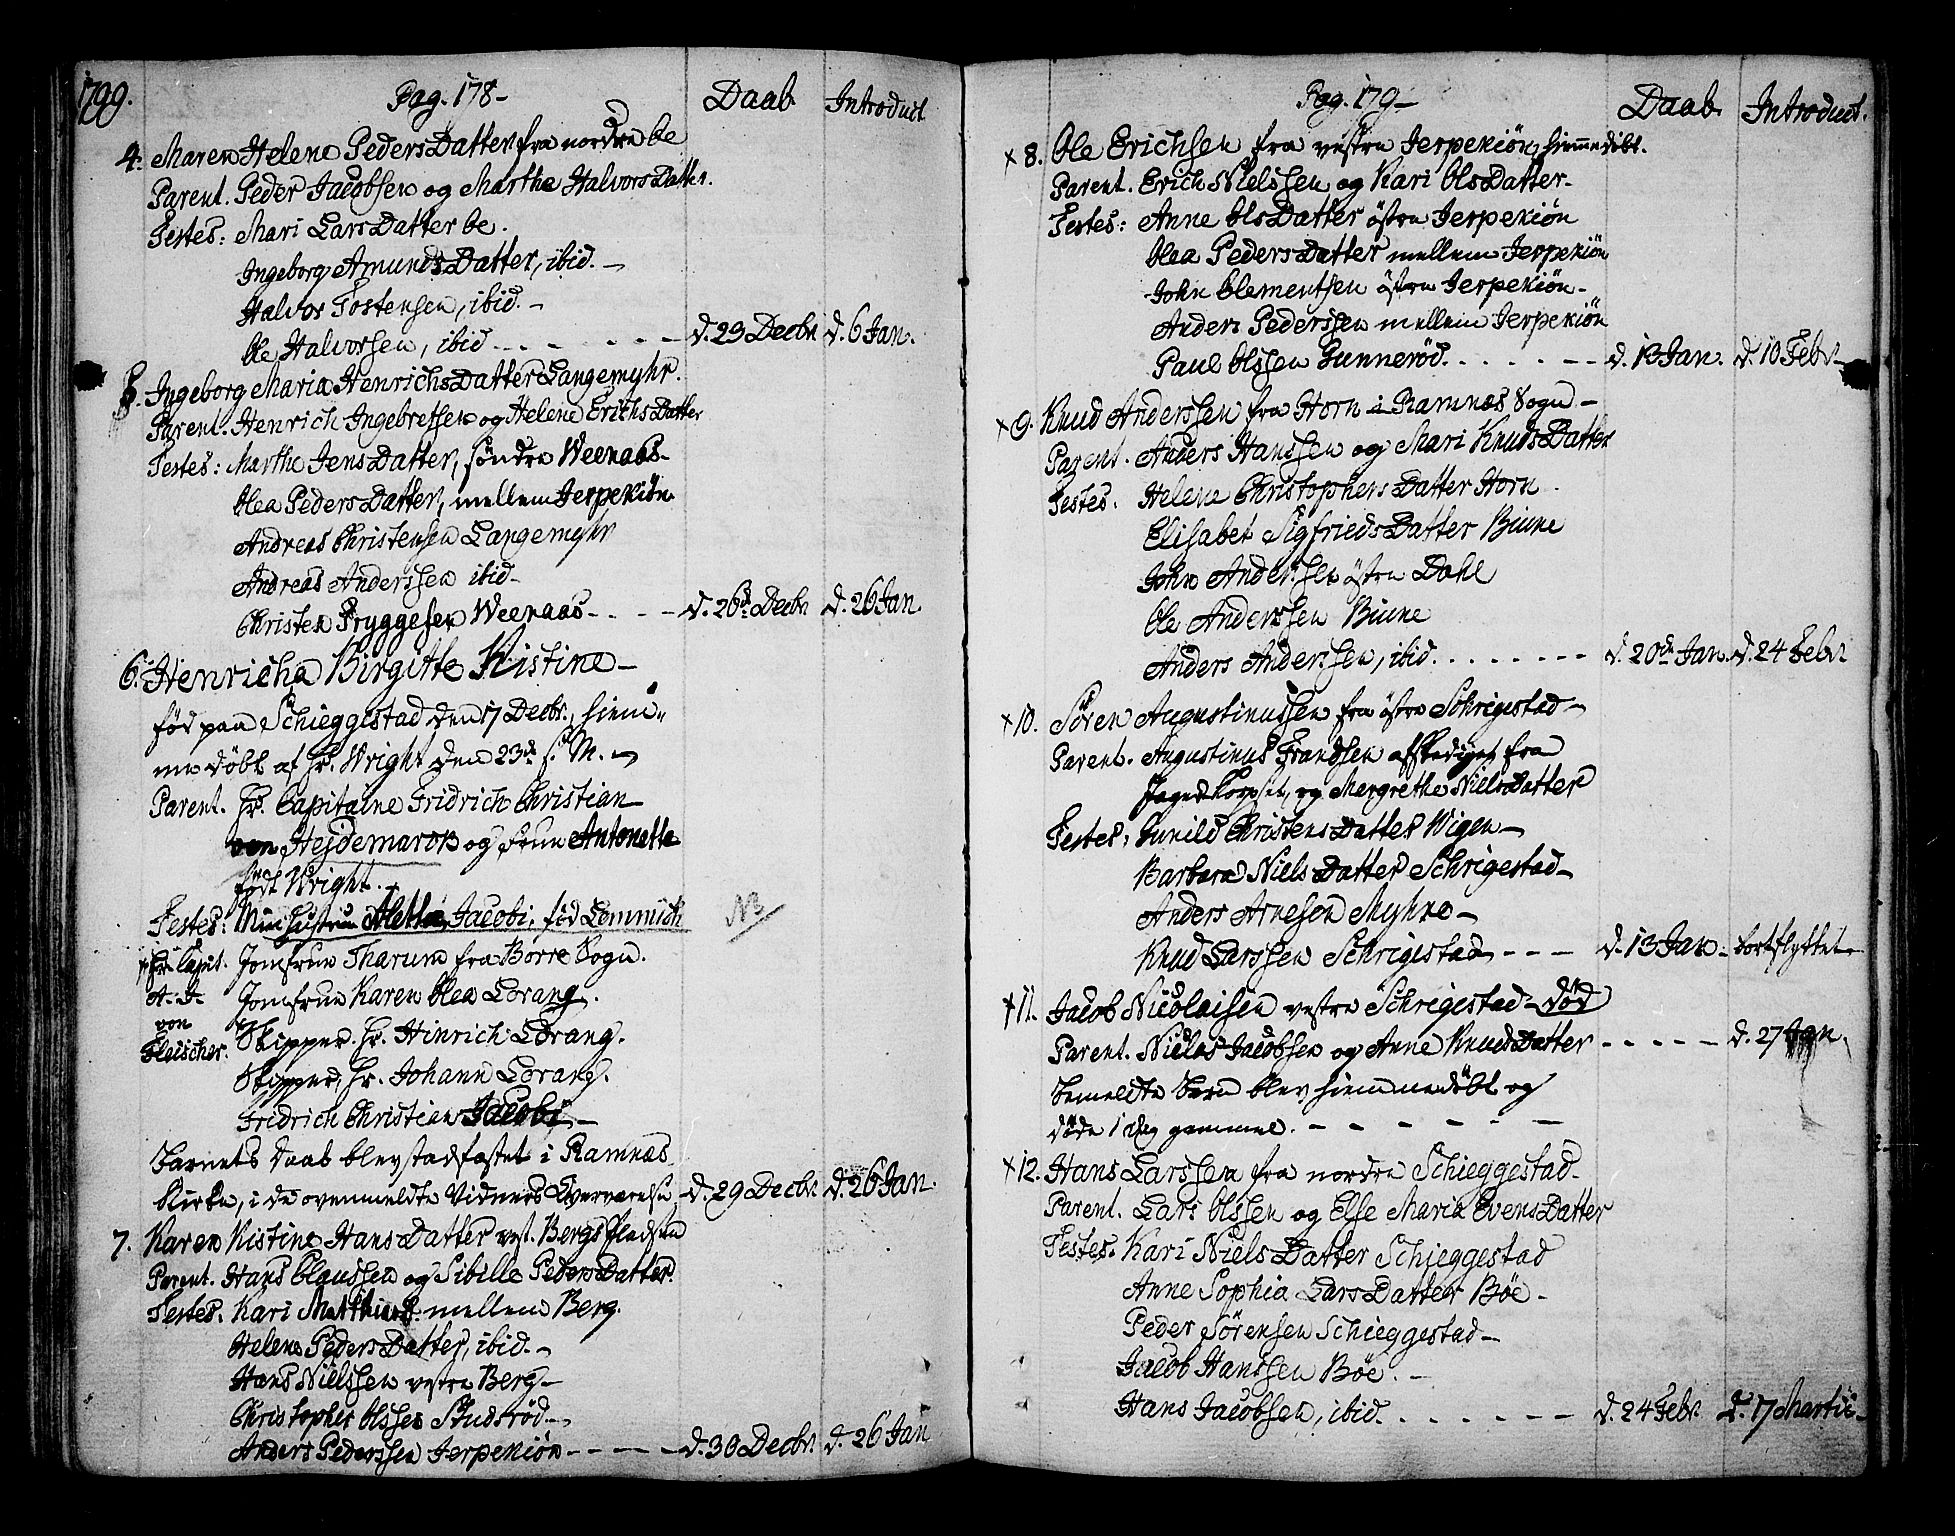 1799.
Pag. 178-
Daab.
Introduct
4. Maren Helene PedersDatter fra nordre Øe
Parent. Peder Jacobsen og Marthe HalvorsDatter.
Testes: Mari LarsDatter Øe.
Ingeborg AmundsDatter, ibid. -
Halvor Tostensen, ibid. -
Ole Halvorssen, ibid - - - - - - d. 23 Decbr. d. 6 Jan.
5. Ingeborg Maria HenrichsDatter Langemyhr.
Parent. Henrich Ingebretsen og Helene ErichsDatter
Testes: Marthe JensDatter, søndre Weenaas-
Olea PedersDatter, mellem Jerpekiøn
Andreas Christensen Langemyhr
Andreas Anderssen ibid-
Christen Tryggesen Weenaas - - - - d. 26de Decbr d. 26 Jan.
6. Henricha Birgitte Kistine-
fød paa Schieggestad den 17 Decbr., hiem-
medøbt af Hr. Wright den 23de s. M. -
Parent. Hr. Capitaine Fridrich Christian
von Hejdemarck og Frue Antonette
født Wright.-
Testes: Min hustrue Alettea Jacobi, fød Lemmich NB
Hr. Capit. Jomfrue Tharum fra Borre Sogn.
A. J. Jomfrue Karen Olea Lorang.
von Skipper Hr. Hinrich Lorang.
Fleischer. Skipper, Hr. Johann Lorang.
Fridrich Christian Jacobi -
Barnets Daab blev stadfæstet i Ramnæs
Kirke, i de ovenmeldte Vidners Overværelse, d. 29 Decbr. d. 26 Jan.
7. Karen Kistine HansDatter vest. Bergs Pladsen
Parent. Hans Claussen og Sibille PedersDatter.
Testes. Kari Matthiasd. mellem Berg.
Helene PedersDatter, ibid. -
Hans Nielssen vestre Berg-
Christopher Olssen Studsrød -
Anders Pederssen Jerpekiøn - - - - d. 30 Decbr. d. 26 Jan
Pag. 179-
Daab.
Introduct.
+ 8. Ole Erichsen fra vestre Jerpekiøn, hiemmedøbt.
Parent. Erich Nielssen og Kari OlsDatter-
Testes: Anne OlsDatter østre Jerpekiøn
Olea PedersDatter mellem Jerpekiøn
John Clementsen østre Jerpekiøn-
Anders Pederssen mellem Jerpekiøn
Paul Olssen Gunnerød. - - - - d. 13 Jan. d. 10 Febr.
+ 9. Knud Anderssen fra Horn i Ramnæs Sogn-
Parent. Anders Hanssen og Mari KnudsDatter
Testes. Helene ChristophersDatter Horn.
Elisabet SigfriedsDatter Biune
John Anderssen østre Dahl
Ole Anderssen Biune
Anders Anderssen, ibid. - - - - - - d. 20de Jan. d. 24 Febr.
+ 10. Søren Augustinussen fra østre Schrigestad-
Parent. Augustinus Frandsen afskediget fra
Jagerkorpset, og Margrethe NielsDatter
Testes: Gunild ChristensDatter Wigen-
Barbara NielsDatter Schrigestad-
Anders Arnesen Myhre-
Knud Larssen Schrigestad - - - d. 13 Jan. bortflyttet-
+ 11. Jacob Nicolaisen vestre Schrigestad- død
Parent. Niclas Jacobsen og Anne KnudsDatter - - - - - d. 27 Jan.
Bemeldte Barn blev hiemmedøbt og
døde 1 Dag gammel. - - - - - -
+ 12. Hans Larssen fra nordre Schieggestad-
Parent. Lars Olssen og Else Maria EvensDatter
Testes. Kari NielsDatter Schieggestad
Anne Sophia LarsDatter Bøe-
Peder Sørensen Schieggestad-
Jacob Hanssen Bøe. -
Hans Jacobsen, ibid. - - - - - - d. 24 Febr. d. 17 Martii-